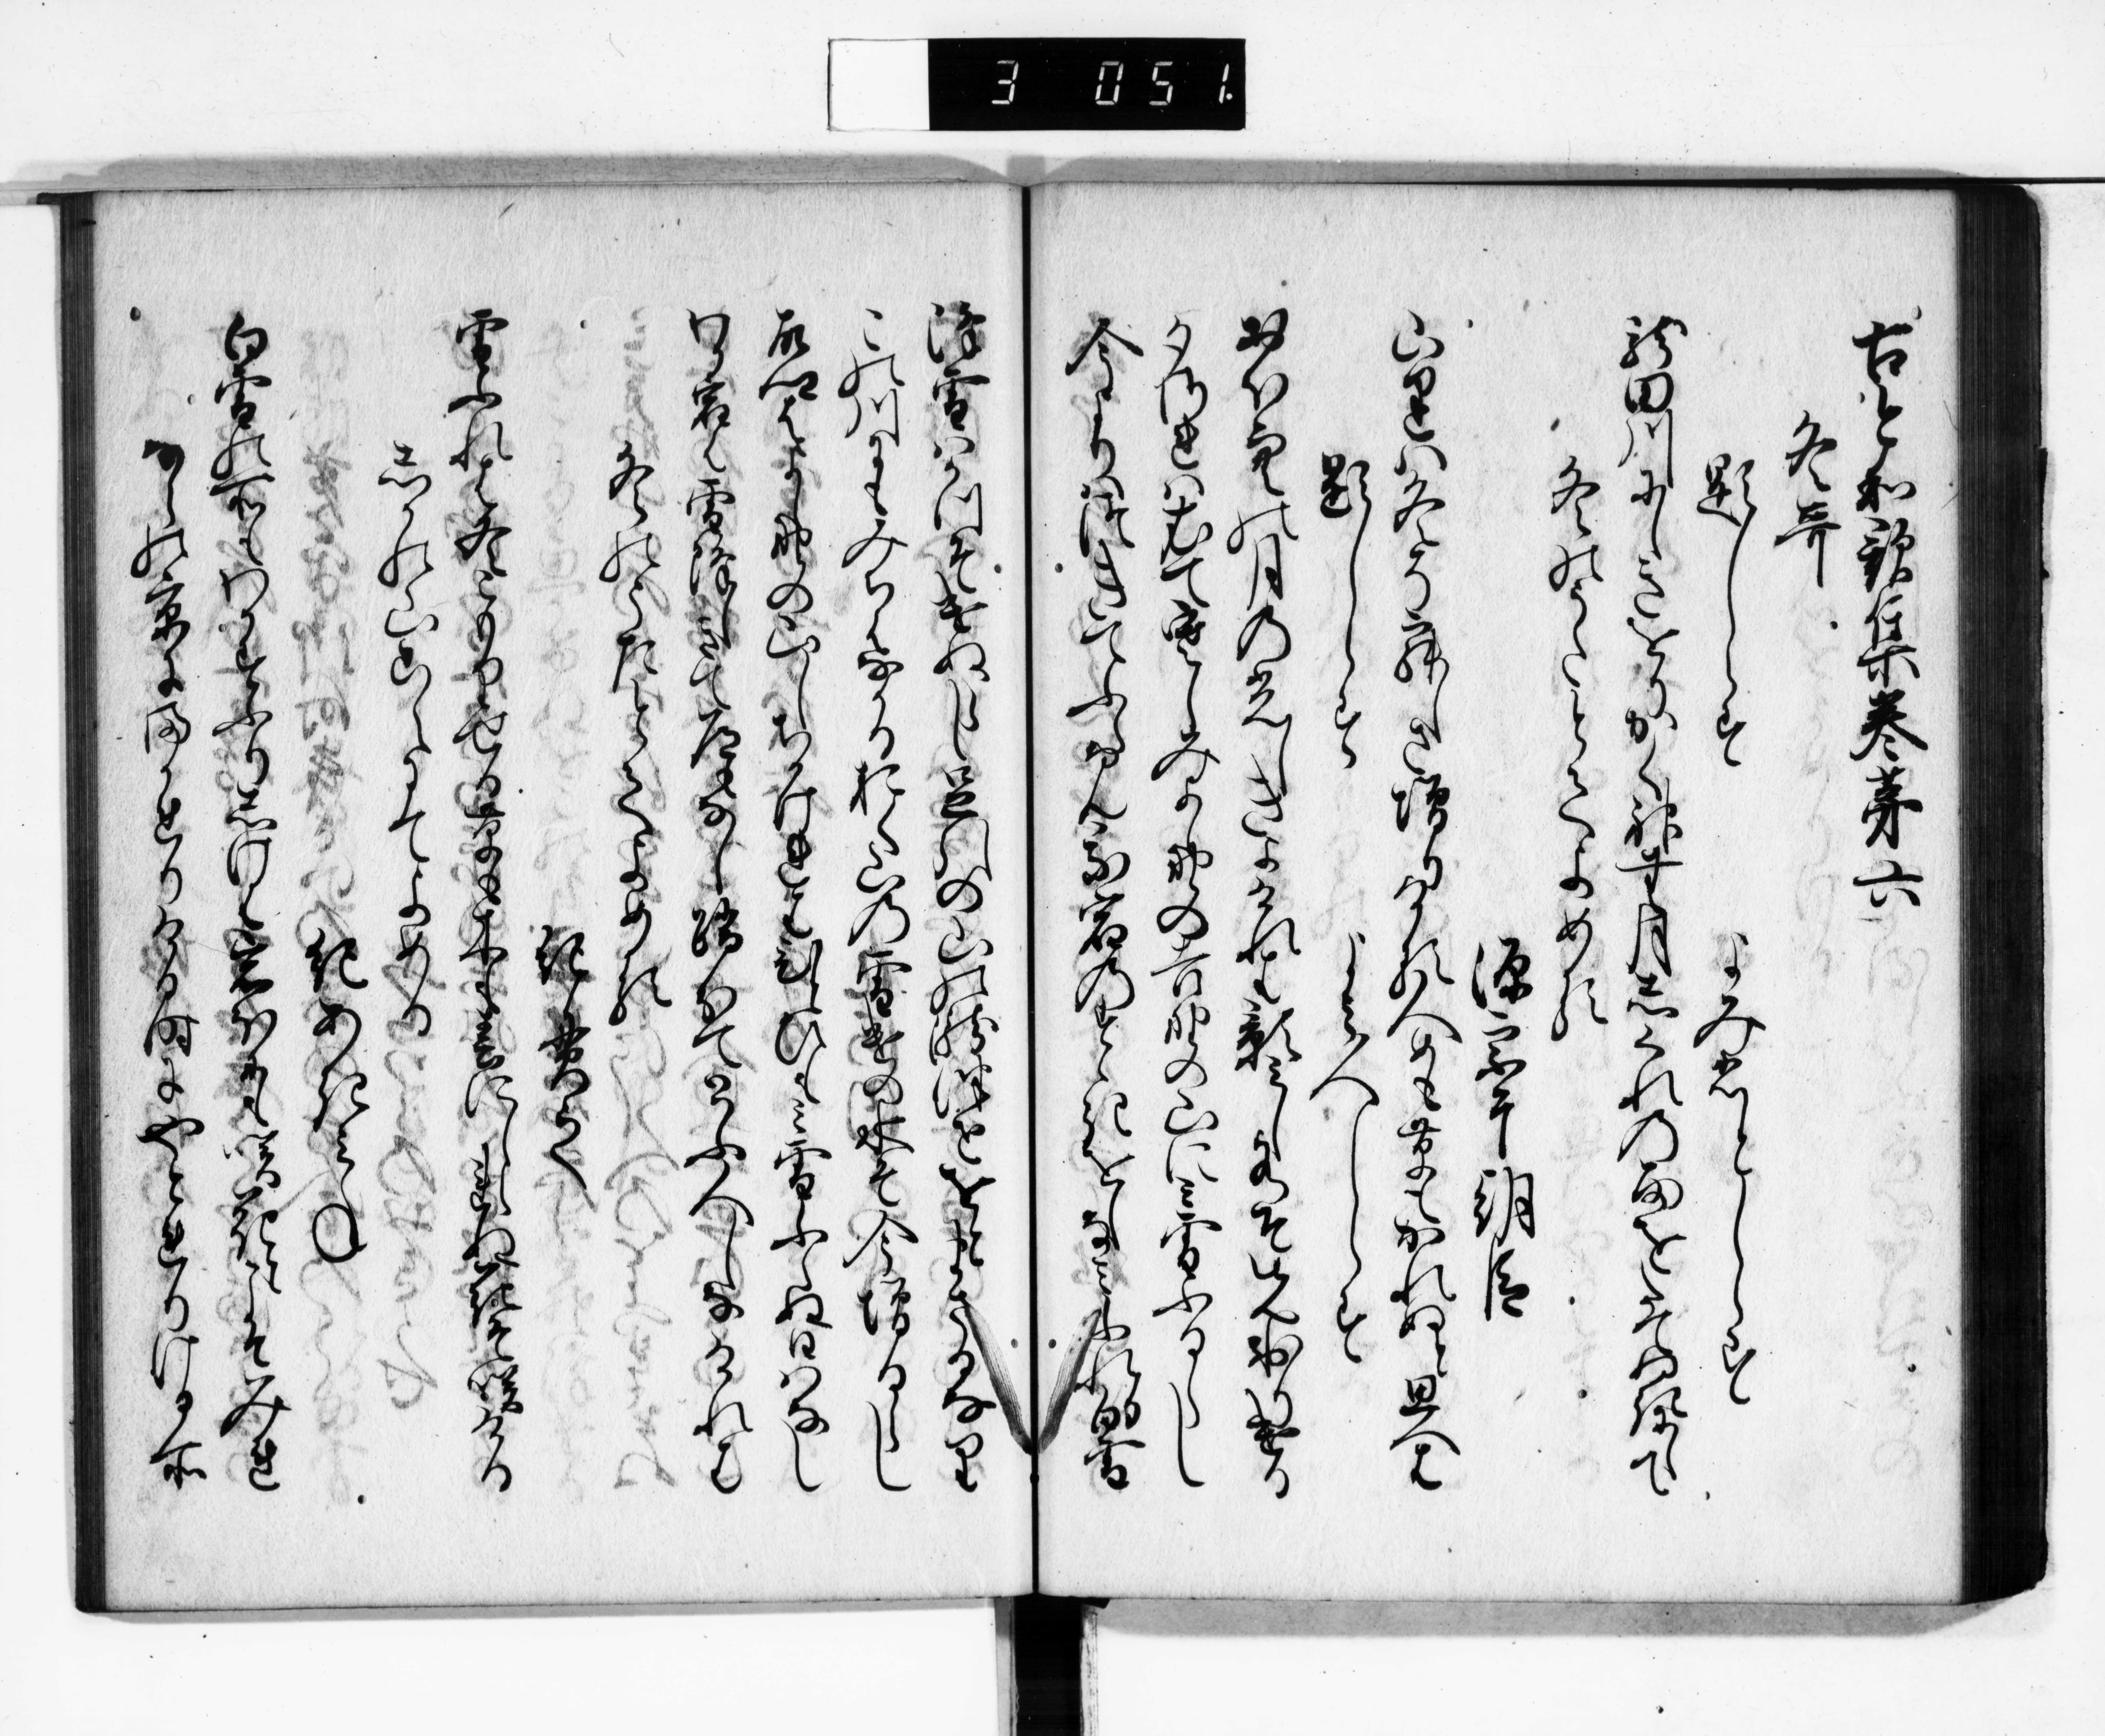 3 051.
古今和歌集巻第六
冬哥
題しらす よみ人しらす
龍田川にしきをりかく神無月しくれの雨をたてぬきにして
冬のうたとてよめる
源宗于朝臣
山里は冬そ寂しさ増りける人めも草もかれぬと思へは
題しらす よみ人しらす
おほ空の月の光しきよけれは影見し水そ先こほりける
夕されは衣手寒しみよし野の吉野の山に三雪ふるらし
今よりは継てふらなん我宿の薄をしなみふれる白雪
降雪はかつそけぬらし足引の山の瀧津せをとまさるなり
この川にもみち葉なかるおく山の雪けの水そ今増るらし
故郷はよし野の山しちかけれは一日も三雪ふらぬ日はなし
わか宿は雪降しきて道もなし踏分てとふ人しなけれは
冬のうたとてよめる
紀貫之
雪ふれは冬こもりせる草も木も春にしられぬ花そ咲ける
しかの山こえにてよめる
紀あきみね
白雪の所もわかすふりしけは巌にもさく花とこそみれ
ならの京にまかれりける時にやとれりける所